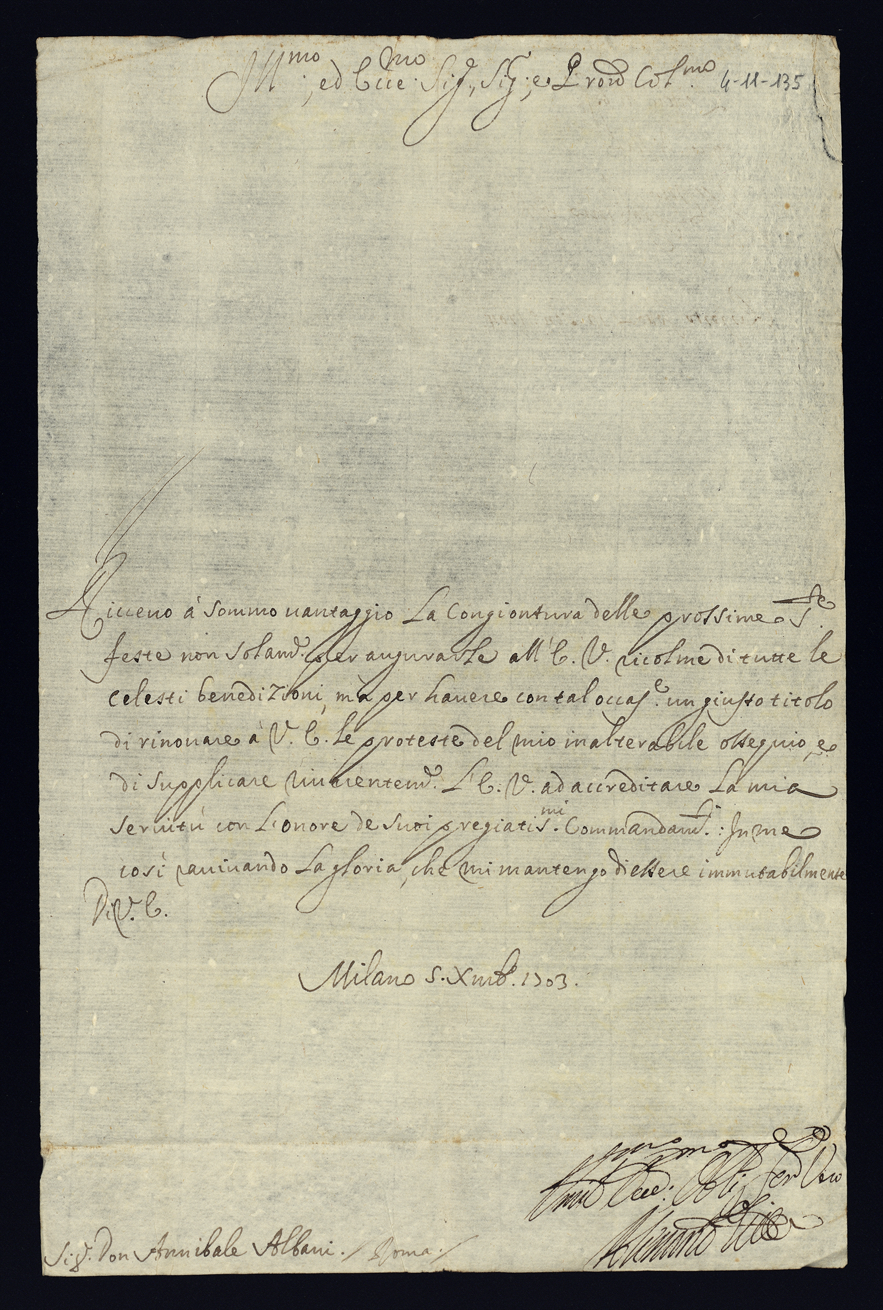 Ill.mo, ed Ecc.mo Sig.e, Sig.e, e Pron Col.mo 4-11-135
Riceuo à sommo uantaggio la Congiontura delle prossime S.te
feste non solam.te per augurarle all'E. V. ricolme di tutte le
celesti benedizioni, mà per hauere con tal occas.e un giusto titolo
di rinouare à V. E. le proteste del mio inalterabile ossequio, e
di supplicare riuerentem.te l'E. V. ad accreditare la mia
seruitù con l'onore de suoi pregiatis.mi Commandam.ti: In me
così rauiuando la gloria, che mi mantengo di essere immutabilmente
Di V. E.
Milano 5. Xmb.e 1703.
Sig.r Don Annibale Albani. / Roma. /